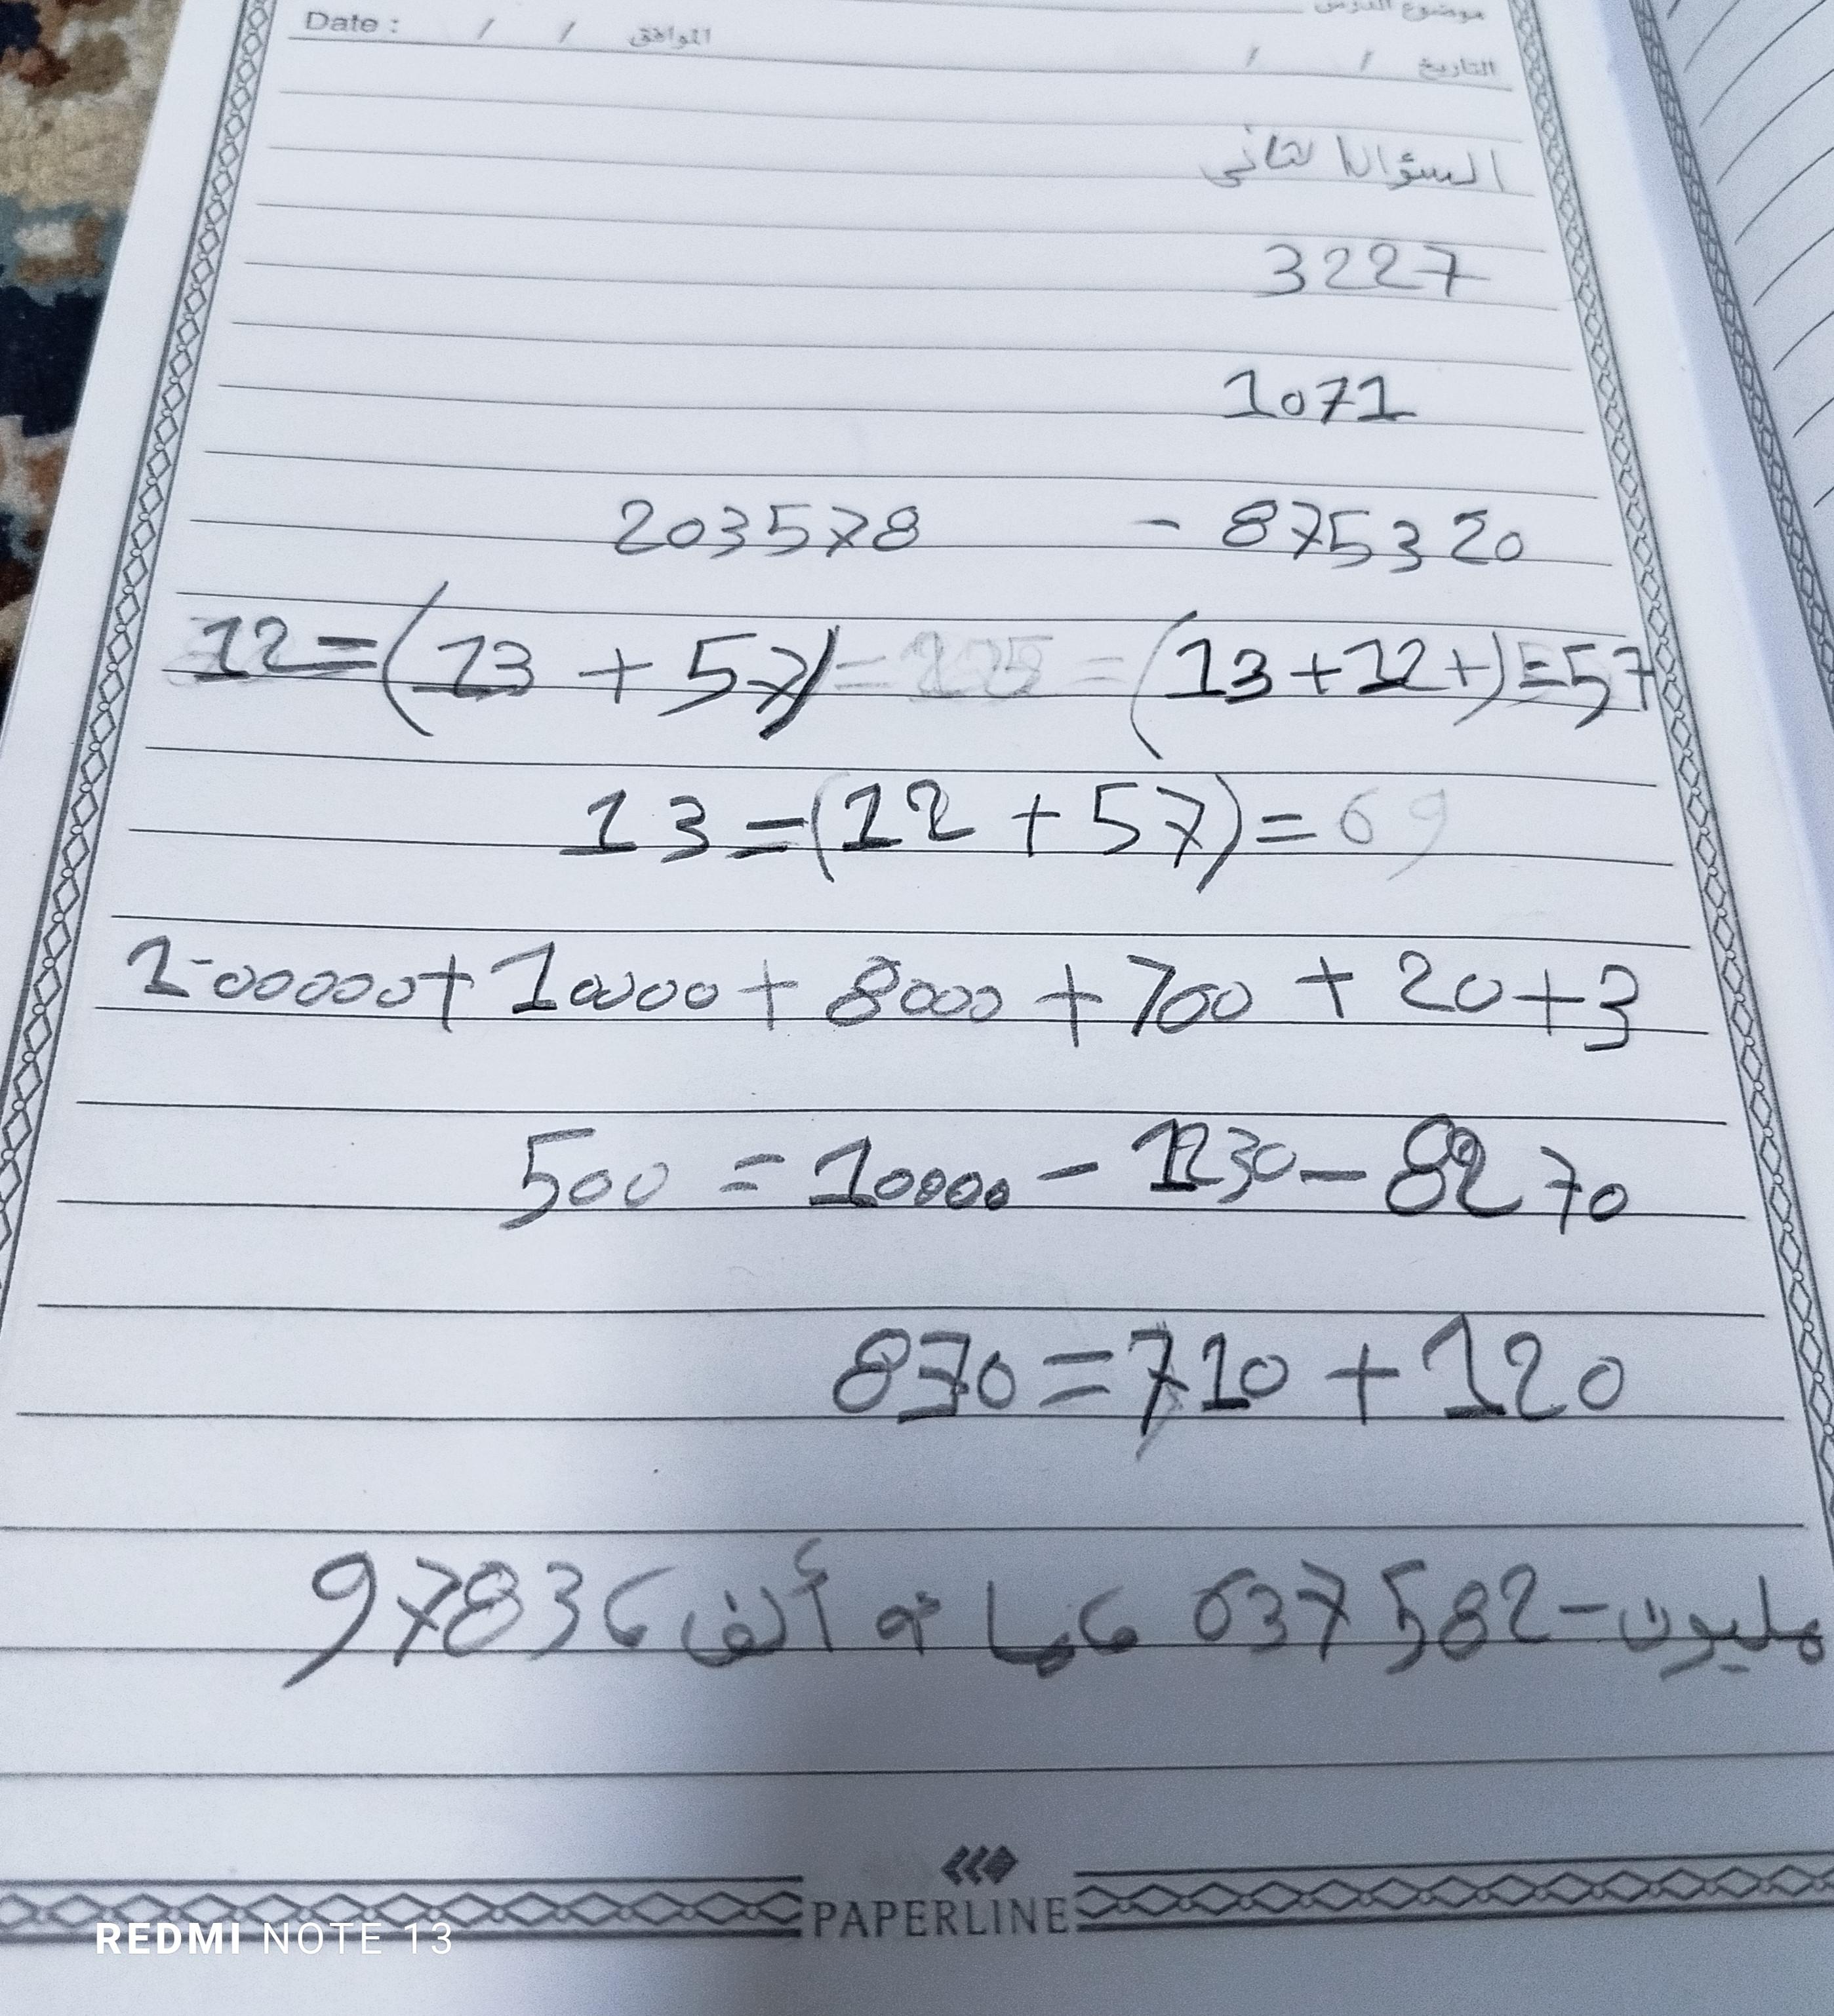 موضوع الدرس
Date : / / الموافق / / التاريخ
السؤال الثاني
3227
1071
203578 - 875320
12=(13 + 57) = 225 = (13+12+)=57
13=(12 + 57)= 69
100000+10000+8000+700+20+3
500=10000-1230-8270
870=710+120
مليون-637582 مائة ألف 97836
PAPERLINE
REDMI NOTE 13